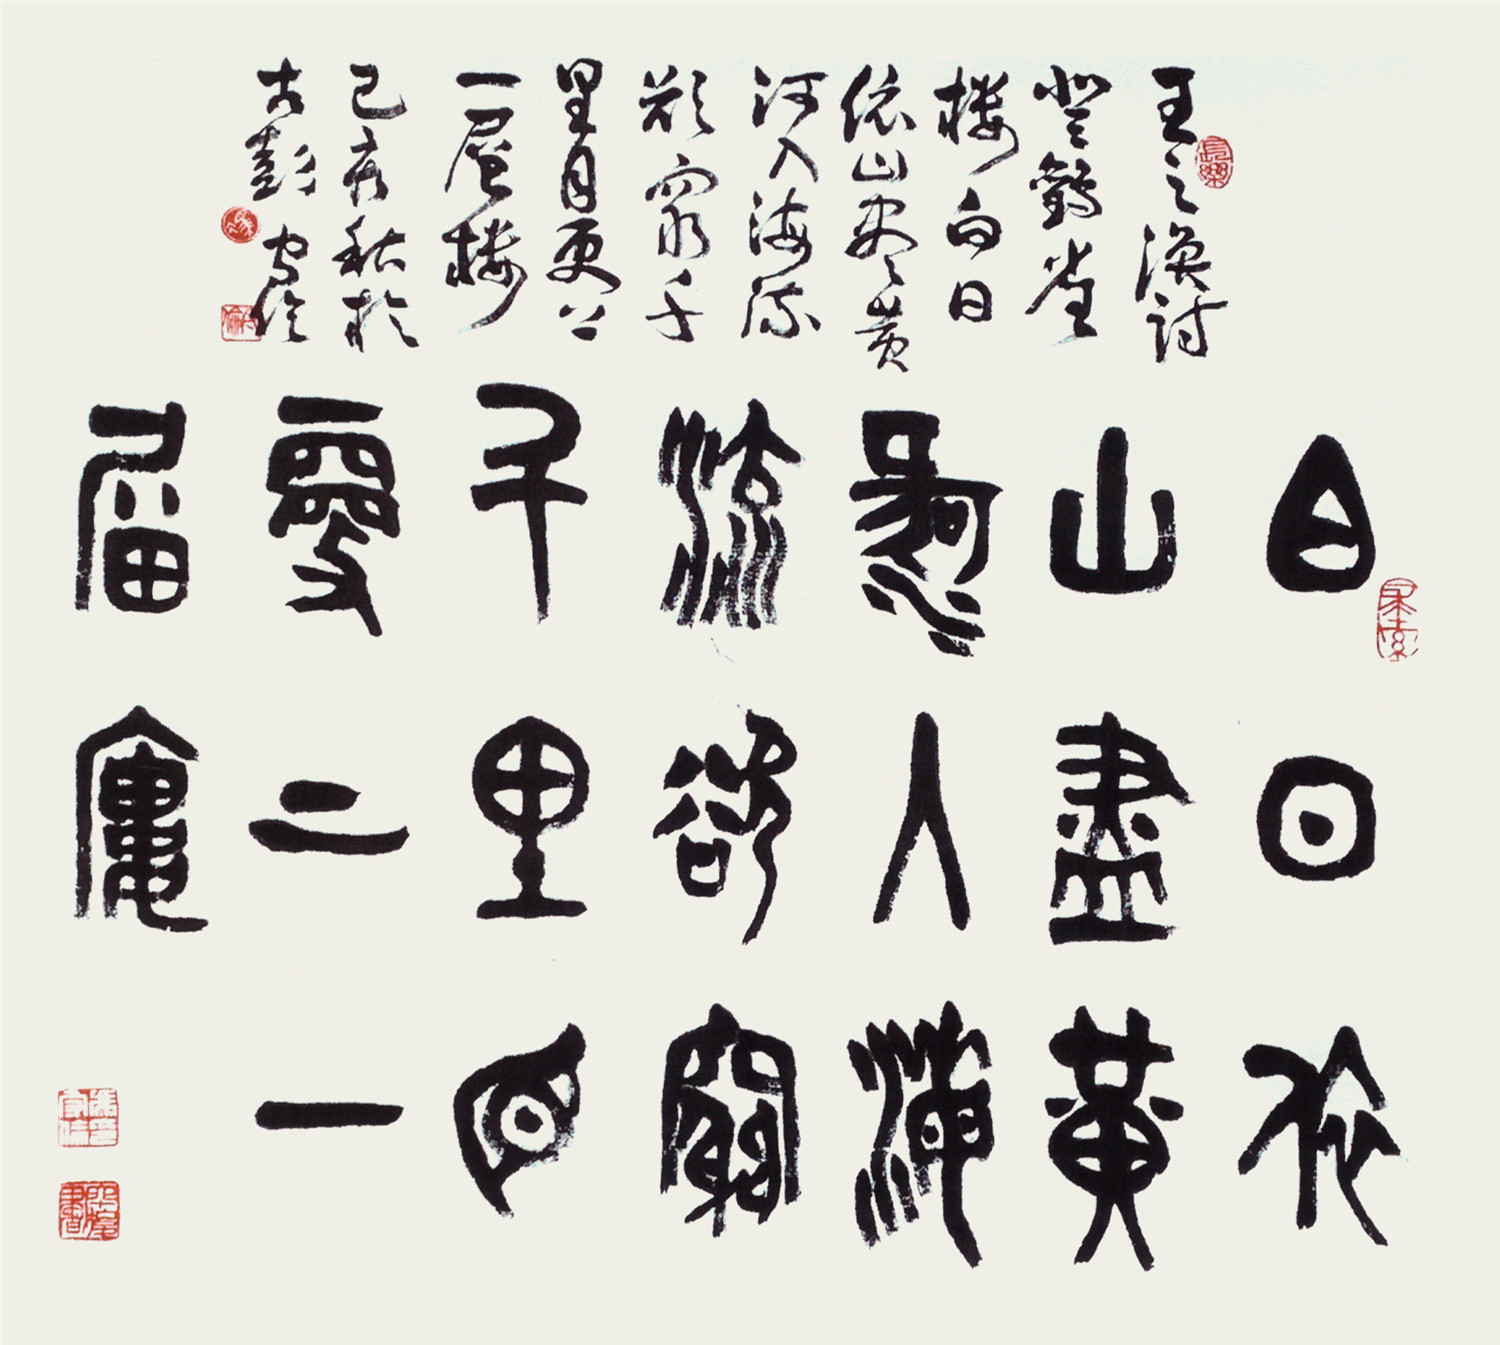 白日依
山盡黃
河入海
流欲窮
千里目
更上一
層樓
王之渙詩
登鸛雀
楼白日
依山尽黄
河入海流
欲窮千
里目更上
一層楼
己亥秋於
古彭